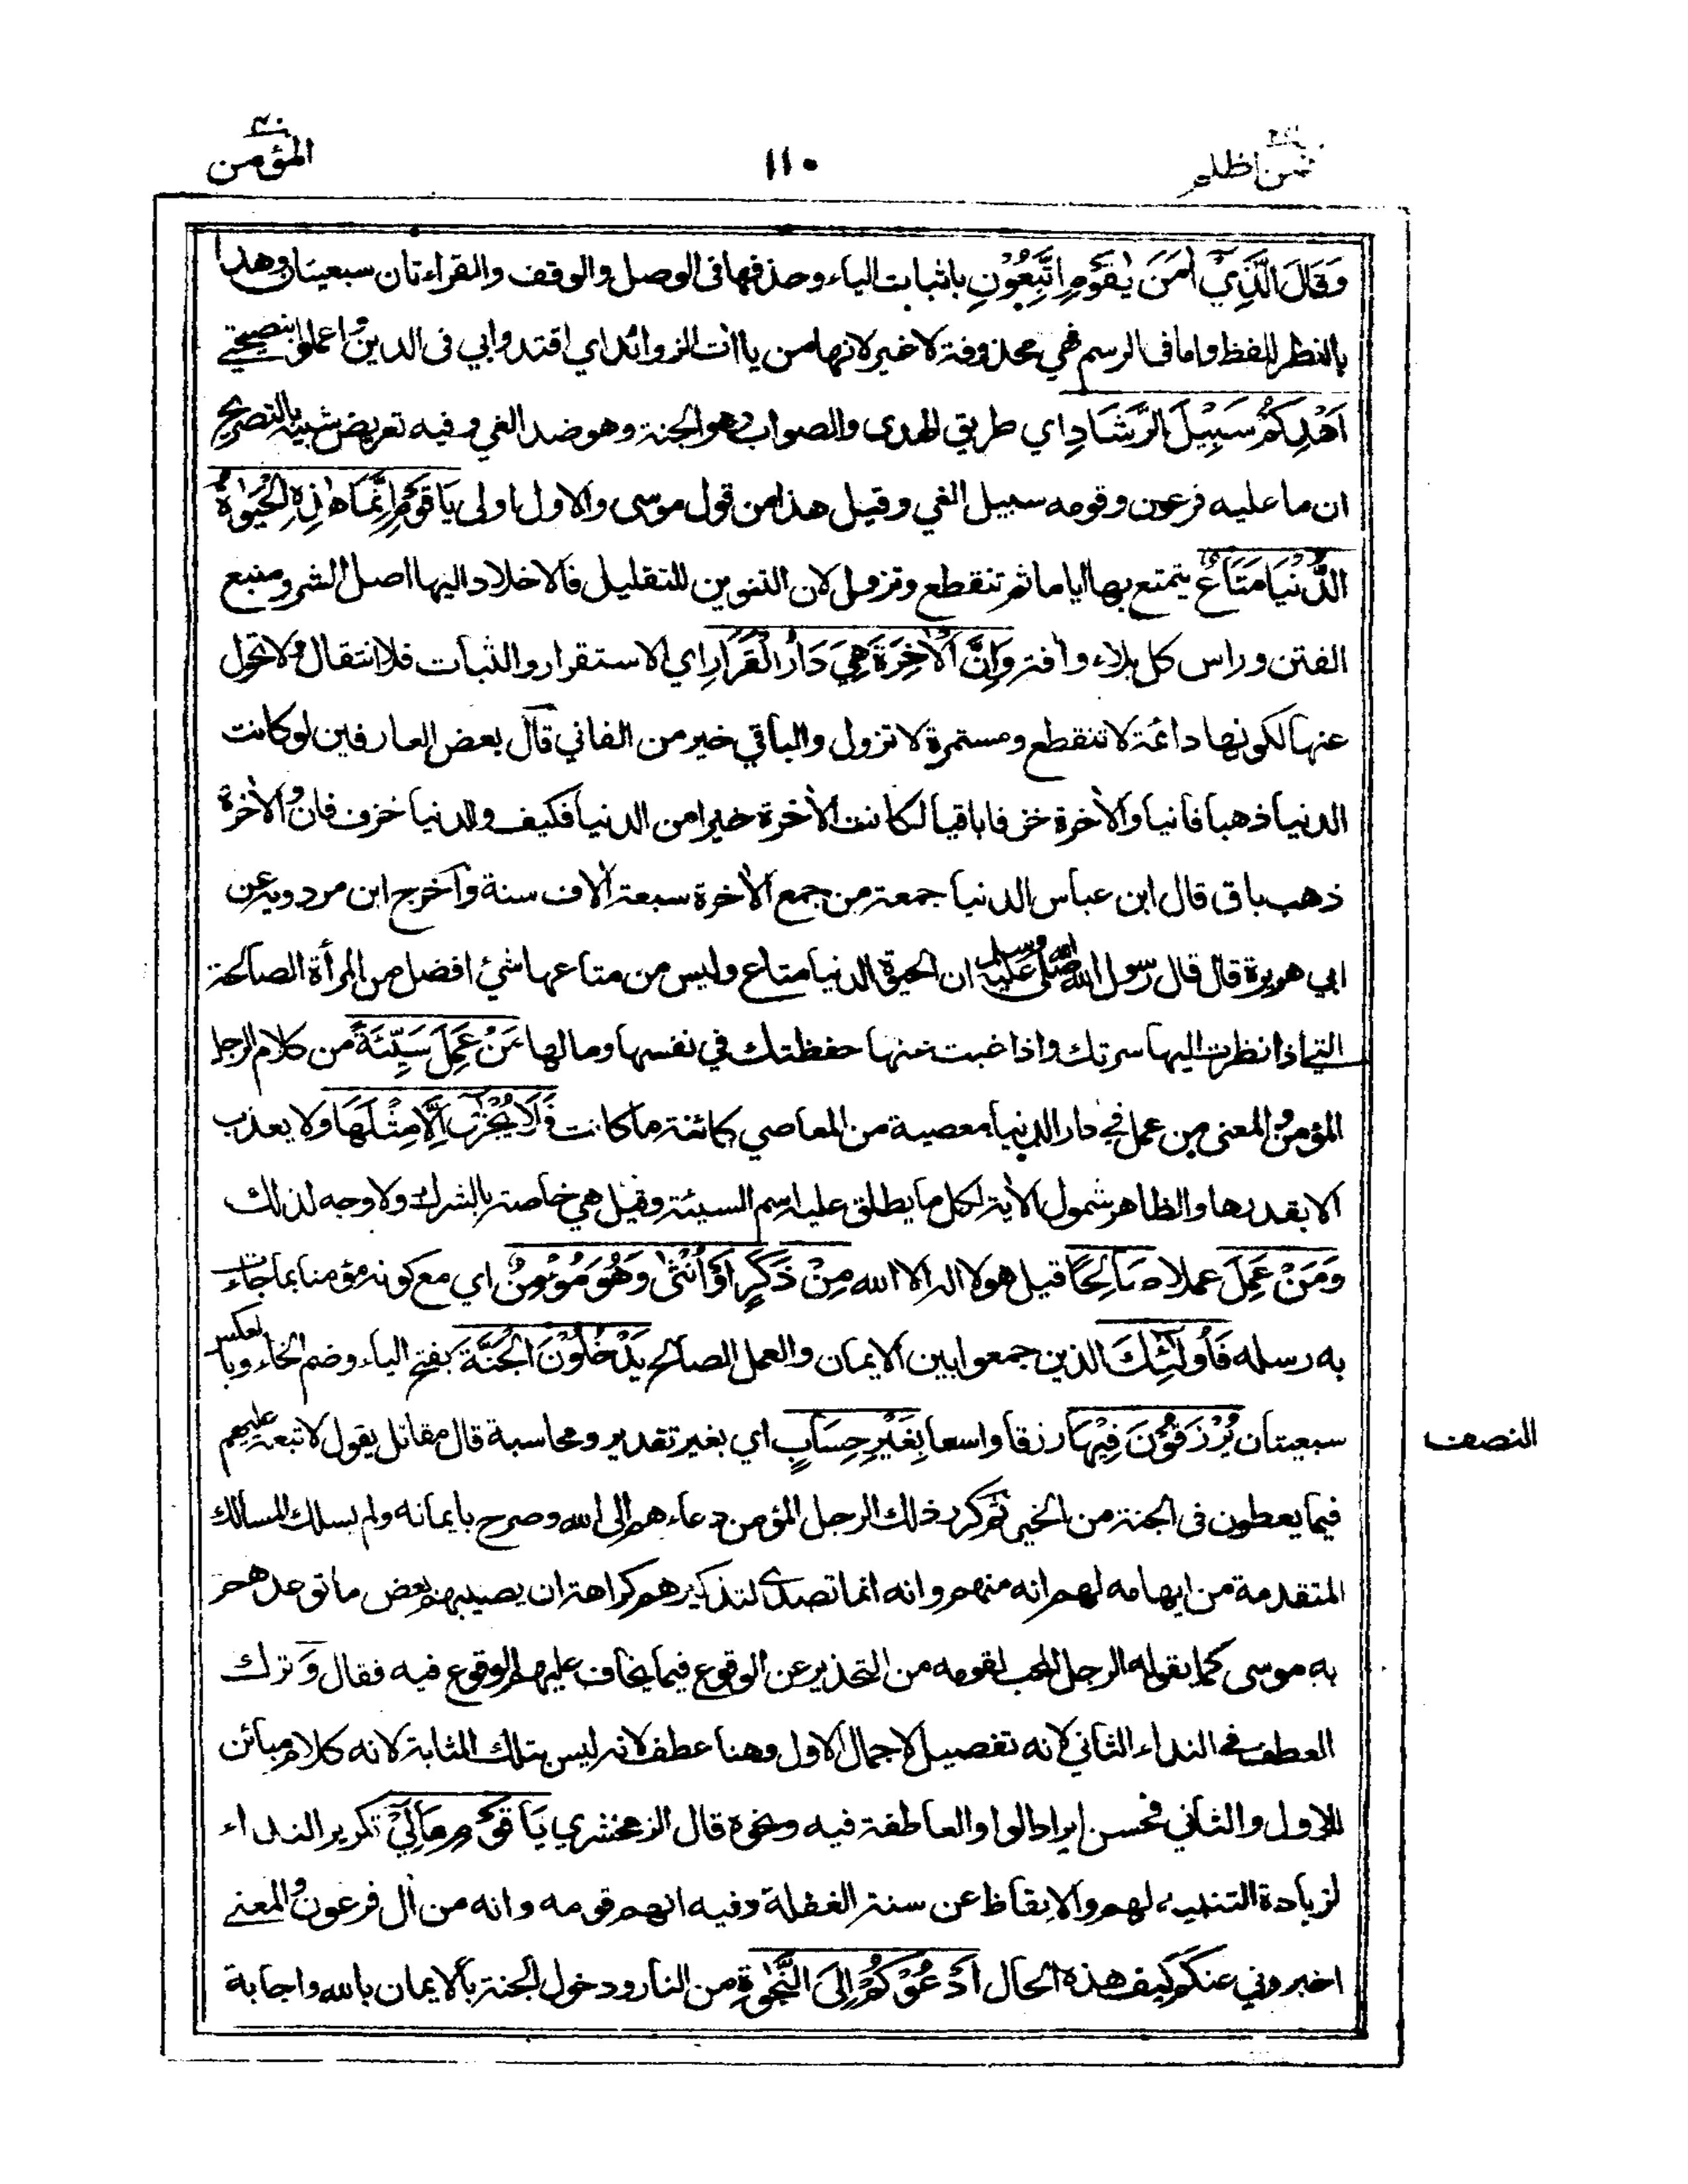 فمن اظلم ٢٤
١١٠
المؤمن ٤٠
وَقَالَ الَّذِيْٓ اٰمَنَ يٰقَوْمِ اتَّبِعُوْنِ باثبات الياء وحذفها فى الوصل والوقف والقراءتان سبعيتان وهذا
بالنظر للفظ واما فى الرسم فهي محذوفة لا غير لانها من ياآت الزوائد اي اقتدوا بي فى الدين واعملوا بنصيحتي
اَهْدِكُمْ سَبِيْلَ الرَّشَادِ اي طريق الهدى والصواب وهو الجنة وهو ضد الغي وفيه تعريض شبيه بالتصريح
ان ما عليه فرعون وقومه سبيل الغي وقيل هذا من قول موسى والاول اولى يَا قَوْمِ اِنَّمَا هٰذِهِ الْحَيٰوةُ
الدُّنْيَا مَتَاعٌ يتمتع بها اياما ثم تنقطع وتزول لان التنوين للتقليل فالاخلاد اليها اصل الشر ومنبع
الفتن وراس كل بلاء وأفة وَاِنَّ الْاٰخِرَةَ هِيَ دَارُ الْقَرَارِ اي الاستقرار والثبات فلا انتقال ولا تحول
عنها لكونها دائمة لا تنقطع ومستمرة لا تزول والباقي خير من الفاني قال بعض العارفين لو كانت
الدنيا ذهبا فانيا والأخرة خزفا باقيا لكانت الأخرة خيرا من الدنيا فكيف والدنيا خزف فان والأخرة
ذهب باق قال ابن عباس الدنيا جمعة من جمع الأخرة سبعة الاف سنة وأخرج ابن مردويه عن
ابي هريرة قال قال رسول الله صلى الله عليه وسلم ان الحيوة الدنيا متاع وليس من متاعها شئ افضل من المرأة الصالحة
التي اذا نظرت اليها سرتك واذا غبت عنها حفظتك في نفسها ومالها مَنْ عَمِلَ سَيِّئَةً من كلام الرجل
المؤمن والمعنى من عمل في دار الدنيا معصية من المعاصي كائنة ما كانت فَلَا يُجْزٰٓى اِلَّا مِثْلَهَا ولا يعذب
الا بقدرها والظاهر شمول الأية لكل ما يطلق عليه اسم السيئة وقيل هي خاصة بالشرك ولا وجه لذلك
وَمَنْ عَمِلَ عملا صَالِحًا قيل هو لا اله الا الله مِنْ ذَكَرٍ اَوْ اُنْثٰى وَهُوَ مُؤْمِنٌ اي مع كونه مؤمنا بما جاءت
به رسله فَاُولٰٓئِكَ الذين جمعوا بين الايمان والعمل الصالح يَدْخُلُوْنَ الْجَنَّةَ بفتح الياء وضم الخاء وبالعكس
سبعيتان يُرْزَقُوْنَ فِيْهَا رزقا واسعا بِغَيْرِ حِسَابٍ اي بغير تقدير ومحاسبة قال مقاتل يقول لا تبعة عليهم
النصف
فيما يعطون فى الجنة من الخير ثم كرر ذلك الرجل المؤمن دعاءهم الى الله وصرح بايمانه ولم يسلك المسالك
المتقدمة من ايهامه لهم انه منهم وانه انما تصدى لتذكيرهم كراهة ان يصيبهم بعض ما توعدهم
به موسى كما يقوله الرجل المحب لقومه من التحذير عن الوقوع فيما يخاف عليهم الوقوع فيه فقال وَ ترك
العطف في النداء الثاني لانه تفصيل لاجمال الاول وهنا عطف لانه ليس بتلك المثابة لانه كلام مبائن
للاول والثاني فحسن ايراد الواو العاطفة فيه ونحوه قال الزمخشري يَا قَوْمِ مَا لِيْٓ تكرير النداء
لزيادة التنبيه لهم والايقاظ عن سنة الغفلة وفيه انهم قومه وانه من أل فرعون والمعنى
اخبروني عنكم كيف هذه الحال اَدْعُوْكُمْ اِلَى النَّجٰوةِ من النار ودخول الجنة بالايمان بالله واجابة